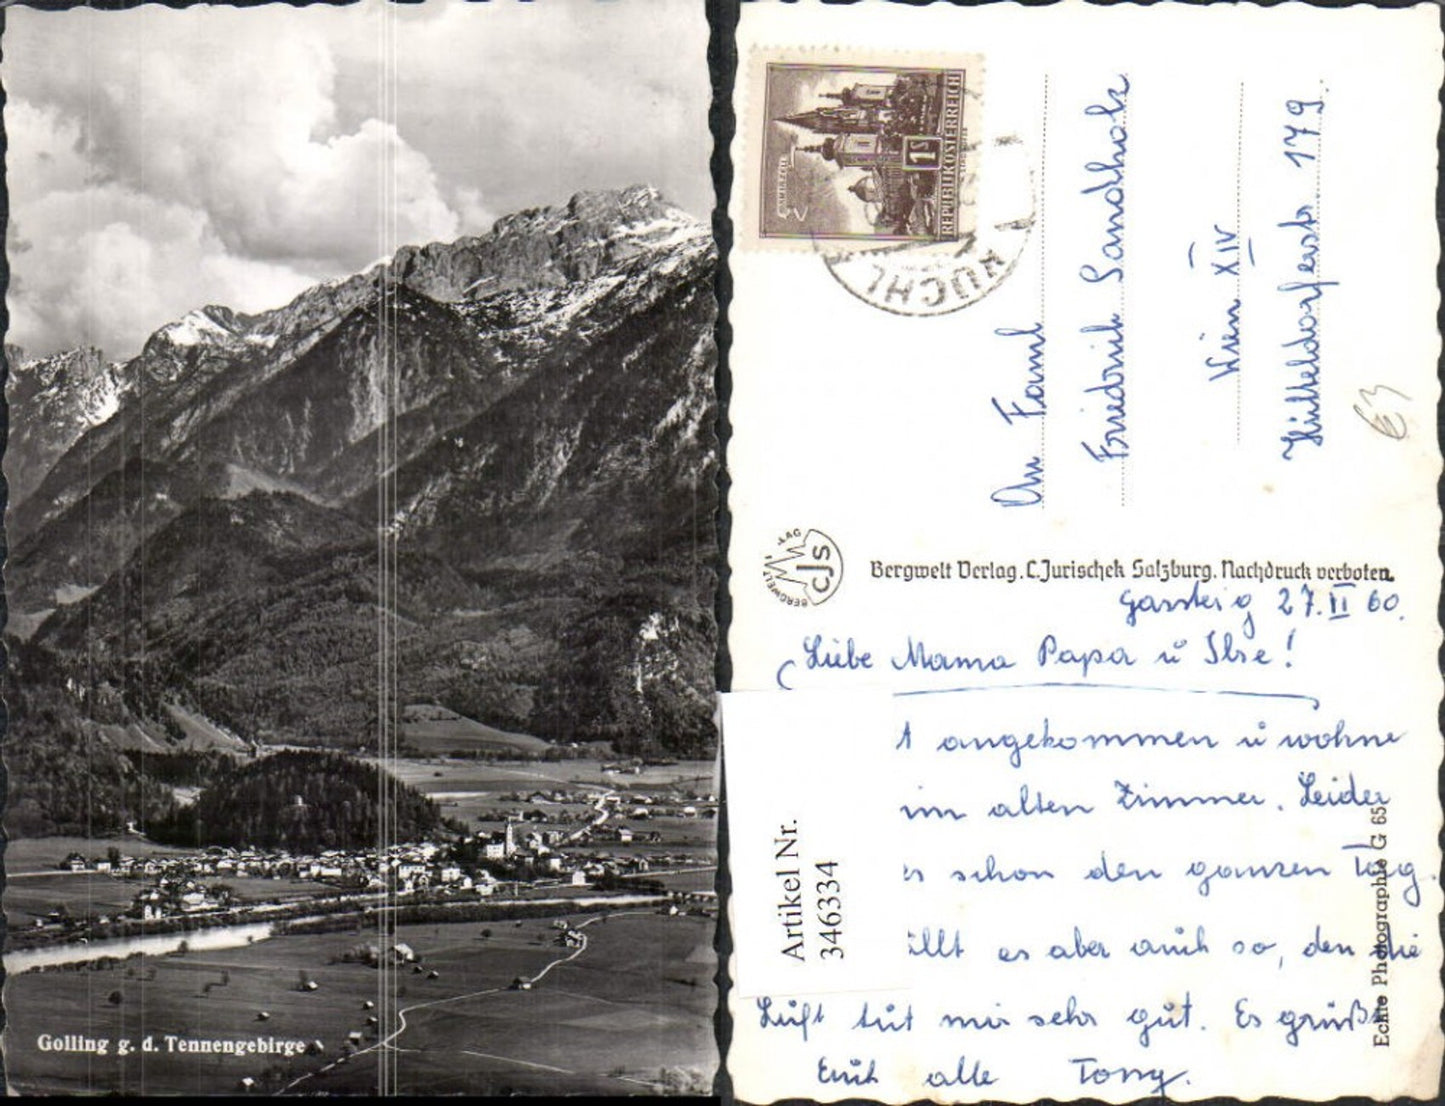 Golling g. d. Tennengebirge
REPUBLIK ÖSTERREICH
1S
KUCHL
An Faml
Friedrich Sandholz
Wien XIV
Hütteldorferstr 179.
€3
BERGWELT-
-LAG
CJS
Bergwelt Verlag. C. Jurischek Salzburg. Nachdruck verboten.
27. II 60.
Liebe Mama Papa u Ilse!
t angekommen u wohne
im alten Zimmer. Leider
es schon den ganzen Tag.
ällt es aber auch so, den die
Luft tut mir sehr gut. Es grüßt
Euch alle Tony.
Echte Photographie G 65
Artikel Nr.
346334